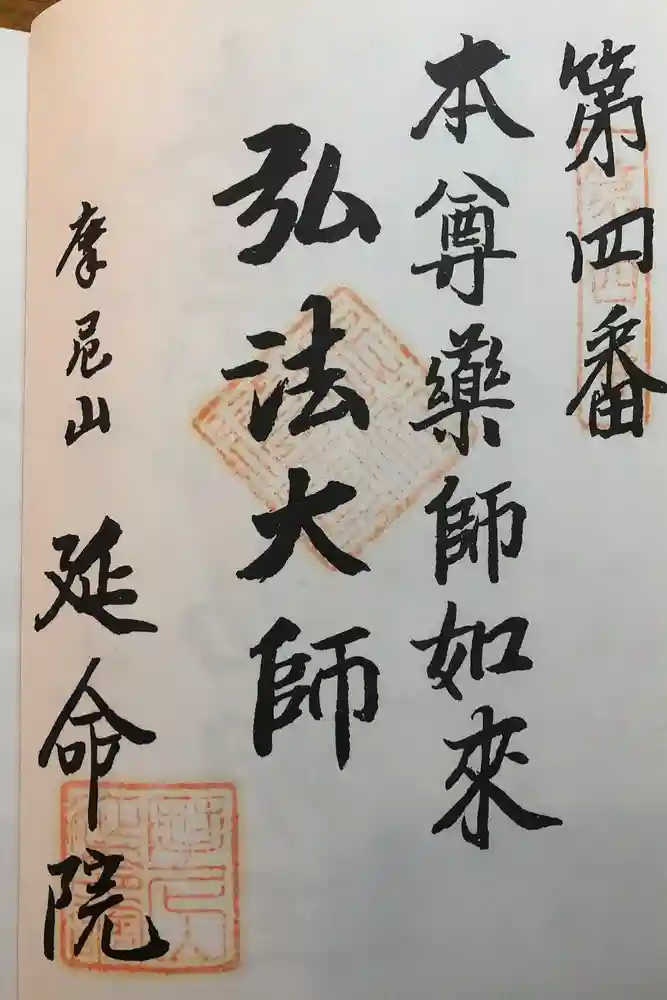 第四番
本尊藥師如來
弘法大師
摩尼山 延命院